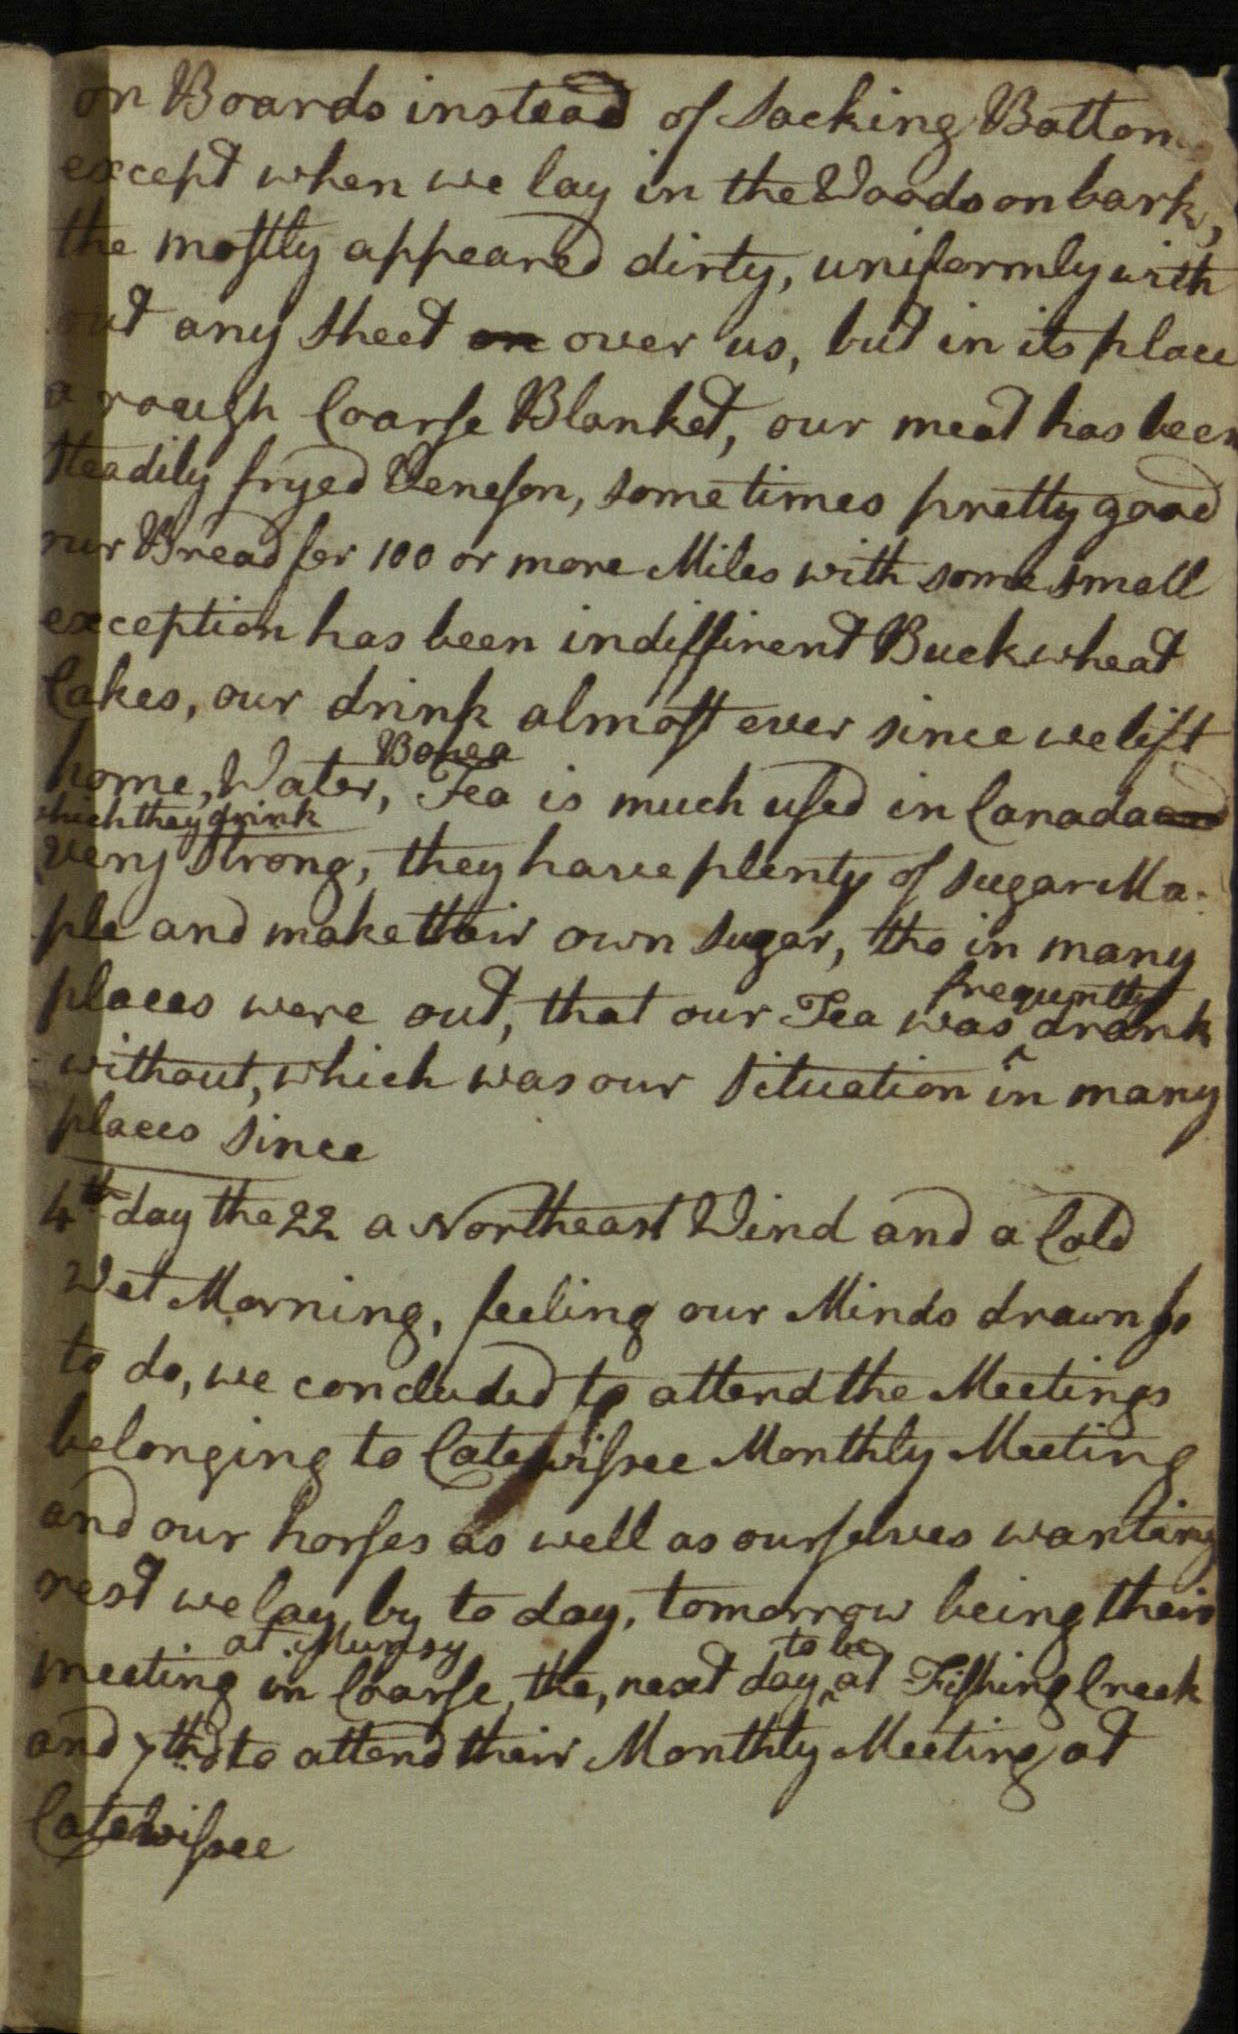 on Boards instead of Sacking Bottom
except when we lay in the Woods on bark,
the mostly appeared dirty, uniformly with
out any Sheet on over us, but in its place
a rough Coarse Blanket, our meat has been
Steadily fryed Veneson, sometimes pretty good
our Bread for 100 or more Miles with some small
exception has been indiffirent Buckwheat
Cakes, our drink almost ever since we lift
home, Water, Bohea Tea is much used in Canada and
which they drink
very strong, they have plenty of sugar Ma-
ple and make their own Sugar, tho in many
places were out, that our Tea was frequently drank
without, which was our Situation in many
places since
4th day the 22 a Northeast Wind and a Cold
Wet Morning, feeling our Minds drawn so
to do, we concluded to attend the Meetings
belonging to Catewissee Monthly Meeting
and our horses as well as ourselves wanting
rest we lay by to day, tomorrow being their
meeting at Munsy in Coarse, the, next day to be at Fishing Creek
and 7th d to attend their Monthly Meeting at
Catewissee